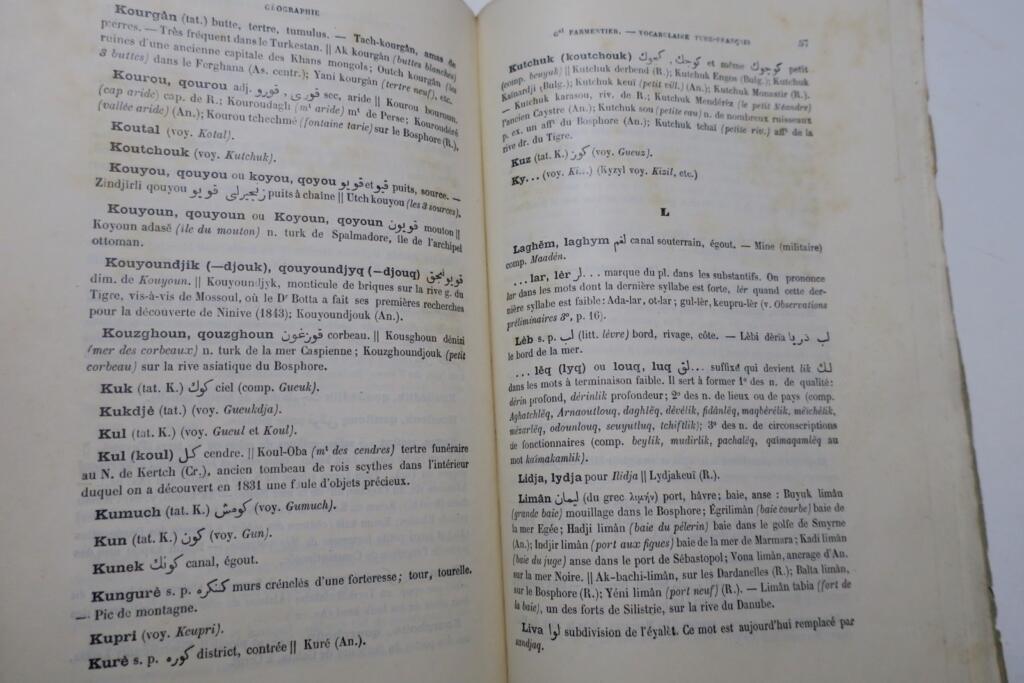 GÉOGRAPHIE
Kourgân (tat.) butte, tertre, tumulus. — Tach-kourgân, amas de
pierres. — Très fréquent dans le Turkestan. || Ak kourgân (buttes blanches)
ruines d'une ancienne capitale des Khans mongols; Outch kourgân (les
3 buttes) dans le Ferghana (As. centr.); Yani kourgân (tertre neuf), etc.
Kourou, qourou adj. قورو , قورى sec, aride || Kourou bouroun
(cap aride) cap. de R.; Kouroudagh (mt aride) mt de Perse; Kouroudéré
(vallée aride) (An.); Kourou tchechmé (fontaine tarie) sur le Bosphore (R.).
Koutal (voy. Kotal).
Koutchouk (voy. Kutchuk).
Kouyou, qouyou ou koyou, qoyou قويو et قيو puits, source. —
Zindjirli qouyou زنجيرلى قويو puits à chaîne || Utch kouyou (les 3 sources).
Kouyoun, qouyoun ou Koyoun, qoyoun قويون mouton ||
Koyoun adasê (île du mouton) n. turk de Spalmadore, île de l'archipel
ottoman.
Kouyoundjik (—djouk), qouyoundjyq (—djouq) قويونجق
dim. de Kouyoun. || Kouyoundjyk, monticule de briques sur la rive g. du
Tigre, vis-à-vis de Mossoul, où le Dr Botta a fait ses premières recherches
pour la découverte de Ninive (1843); Kouyoundjouk (An.).
Kouzghoun, qouzghoun قوزغون corbeau. || Kousghoun dénizi
(mer des corbeaux) n. turk de la mer Caspienne; Kouzghoundjouk (petit
corbeau) sur la rive asiatique du Bosphore.
Kuk (tat. K.) كوك ciel (comp. Gueuk).
Kukdjê (tat.) (voy. Gueukdja).
Kul (tat. K.) (voy. Gueul et Koul).
Kul (koul) كل cendre. || Koul-Oba (mt des cendres) tertre funéraire
au N. de Kertch (Cr.), ancien tombeau de rois scythes dans l'intérieur
duquel on a découvert en 1831 une foule d'objets précieux.
Kumuch (tat. K.) كومش (voy. Gumuch).
Kun (tat. K.) كون (voy. Gun).
Kunek كونك canal, égout.
Kungurê s. p. كنكره murs crénelés d'une forteresse; tour, tourelle.
— Pic de montagne.
Kupri (voy. Keupri).
Kurê s. p. كوره district, contrée || Kuré (An.).
Gal PARMENTIER. — VOCABULAIRE TURK-FRANÇAIS 57
Kutchuk (koutchouk) كوچك , كچوك et même كوچوك petit
(comp. beuyuk) || Kutchuk derbend (R.); Kutchuk Engos (Bulg.); Kutchuk
Kaïnardji (Bulg.); Kutchuk keuï (petit vill.) (An.); Kutchuk Monastir (R.).
— Kutchuk karasou, riv. de R.; Kutchuk Mendériz (le petit Méandre)
l'ancien Caystre (An.); Kutchuk sou (petite eau) n. de nombreux ruisseaux
p. ex. un afft du Bosphore (An.); Kutchuk tchaï (petite riv.) afft de la
rive dr. du Tigre.
Kuz (tat. K.) كوز (voy. Gueuz).
Ky... (voy. Ki...) (Kyzyl voy. Kizil, etc.)
L
Laghêm, laghym لغم canal souterrain, égout. — Mine (militaire)
comp. Maadén.
...lar, lêr لر... marque du pl. dans les substantifs. On prononce
lar dans les mots dont la dernière syllabe est forte, lér quand cette der-
nière syllabe est faible: Ada-lar, ot-lar; gul-lèr, keupru-lèr (v. Observations
préliminaires 3°, p. 16).
Lêb s. p. لب (litt. lèvre) bord, rivage, côte. — Lêbi dèria لب دريا
le bord de la mer.
...lêq (lyq) ou louq, luq لق... لك suffixe qui devient lik
dans les mots à terminaison faible. Il sert à former 1° des n. de qualité:
dérin profond, dérinlik profondeur; 2° des n. de lieux ou de pays (comp.
Aghatchlêq, Arnaoutlouq, daghlêq, dévélik, fidânlêq, maqbérélik, méichélik,
mézarlêq, odounlouq, seuyutluq, tchiftlik); 3° des n. de circonscriptions
de fonctionnaires (comp. beylik, mudirlik, pachalêq, qaïmaqamlêq au
mot kaïmakamlik).
Lidja, lydja pour Ilidja || Lydjakeuï (R.).
Limân ليمان (du grec λιμήν) port, hâvre; baie, anse : Buyuk limân
(grande baie) mouillage dans le Bosphore; Égrilimân (baie courbe) baie de
la mer Egée; Hadji limân (baie du pèlerin) baie dans le golfe de Smyrne
(An.); Indjir limân (port aux figues) baie de la mer de Marmara; Kadi limân
(baie du juge) anse dans le port de Sébastopol; Vona limân, ancrage d'An.
sur la mer Noire. || Ak-bachi-limân, sur les Dardanelles (R.); Balta limân,
sur le Bosphore (R.); Yéni limân (port neuf) (R.). — Limân tabia (fort de
la baie), un des forts de Silistrie, sur la rive du Danube.
Liva لوا subdivision de l'éyalêt. Ce mot est aujourd'hui remplacé par
sandjaq.